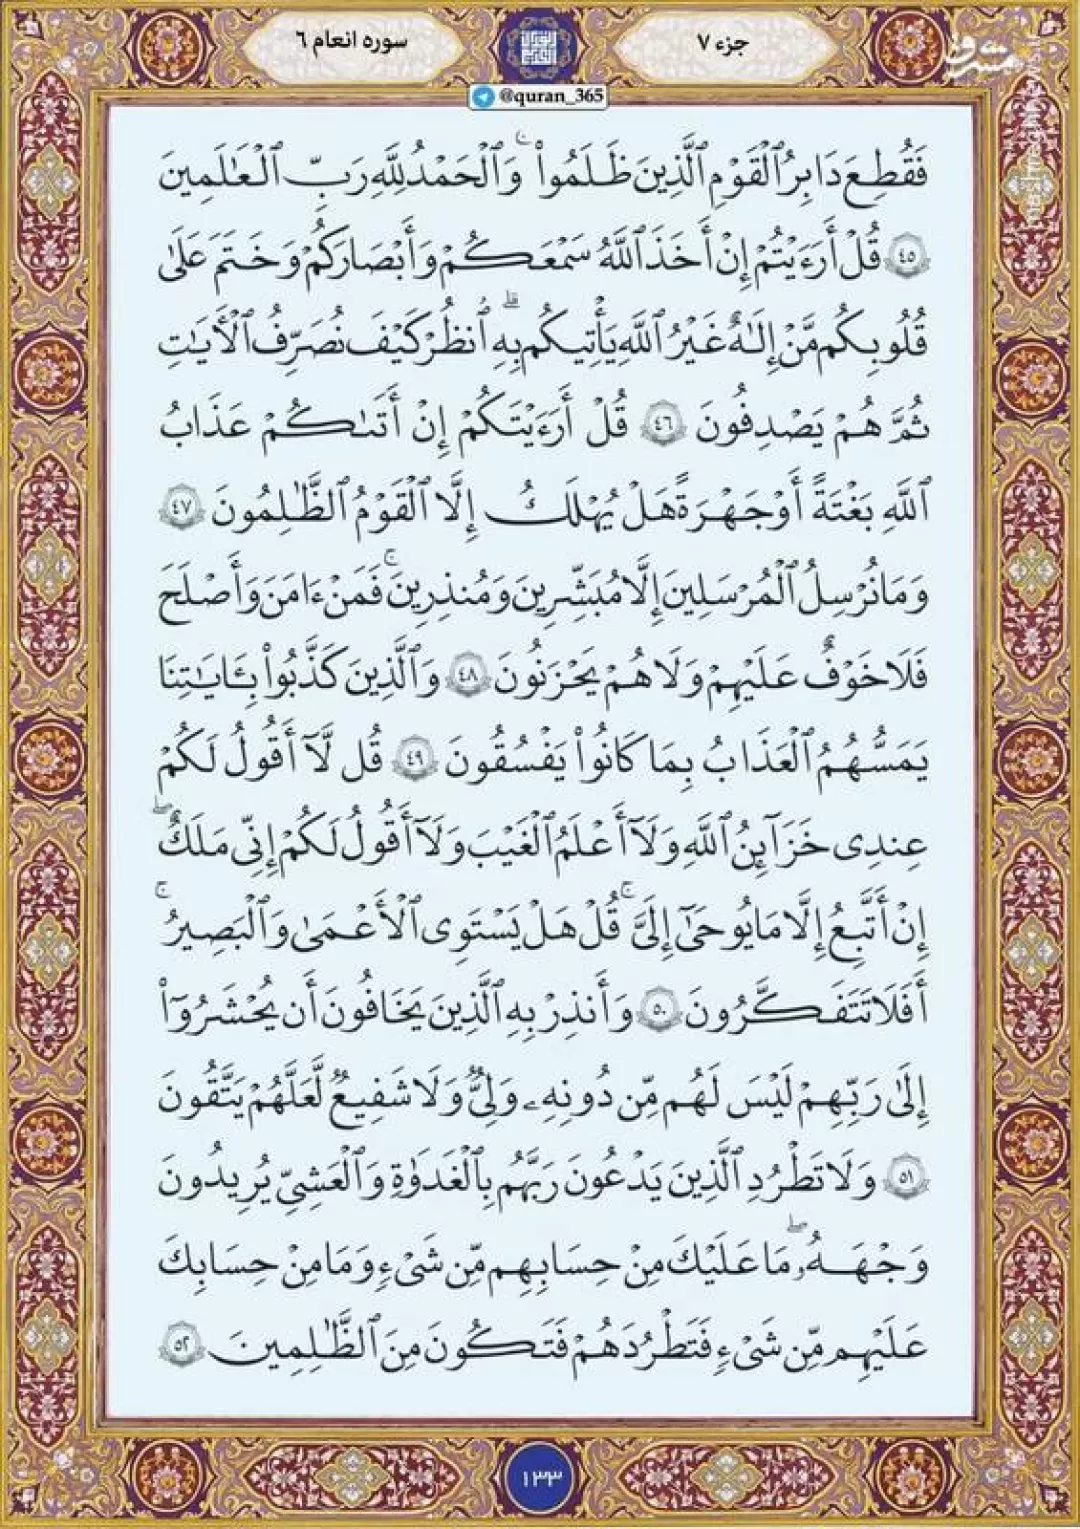 جزء ۷
سوره انعام ۶
مشرق
@quran_365
فَقُطِعَ دَابِرُ ٱلْقَوْمِ ٱلَّذِينَ ظَلَمُوا۟ ۚ وَٱلْحَمْدُ لِلَّهِ رَبِّ ٱلْعَـٰلَمِينَ
﴿٤٥﴾ قُلْ أَرَءَيْتُمْ إِنْ أَخَذَ ٱللَّهُ سَمْعَكُمْ وَأَبْصَـٰرَكُمْ وَخَتَمَ عَلَىٰ
قُلُوبِكُم مَّنْ إِلَـٰهٌ غَيْرُ ٱللَّهِ يَأْتِيكُم بِهِ ۗ ٱنظُرْ كَيْفَ نُصَرِّفُ ٱلْـَٔايَـٰتِ
ثُمَّ هُمْ يَصْدِفُونَ ﴿٤٦﴾ قُلْ أَرَءَيْتَكُمْ إِنْ أَتَىٰكُمْ عَذَابُ
ٱللَّهِ بَغْتَةً أَوْ جَهْرَةً هَلْ يُهْلَكُ إِلَّا ٱلْقَوْمُ ٱلظَّـٰلِمُونَ ﴿٤٧﴾
وَمَا نُرْسِلُ ٱلْمُرْسَلِينَ إِلَّا مُبَشِّرِينَ وَمُنذِرِينَ ۖ فَمَنْ ءَامَنَ وَأَصْلَحَ
فَلَا خَوْفٌ عَلَيْهِمْ وَلَا هُمْ يَحْزَنُونَ ﴿٤٨﴾ وَٱلَّذِينَ كَذَّبُوا۟ بِـَٔايَـٰتِنَا
يَمَسُّهُمُ ٱلْعَذَابُ بِمَا كَانُوا۟ يَفْسُقُونَ ﴿٤٩﴾ قُل لَّآ أَقُولُ لَكُمْ
عِندِى خَزَآئِنُ ٱللَّهِ وَلَآ أَعْلَمُ ٱلْغَيْبَ وَلَآ أَقُولُ لَكُمْ إِنِّى مَلَكٌ ۖ
إِنْ أَتَّبِعُ إِلَّا مَا يُوحَىٰٓ إِلَىَّ ۚ قُلْ هَلْ يَسْتَوِى ٱلْأَعْمَىٰ وَٱلْبَصِيرُ ۚ
أَفَلَا تَتَفَكَّرُونَ ﴿٥٠﴾ وَأَنذِرْ بِهِ ٱلَّذِينَ يَخَافُونَ أَن يُحْشَرُوٓا۟
إِلَىٰ رَبِّهِمْ لَيْسَ لَهُم مِّن دُونِهِۦ وَلِىٌّ وَلَا شَفِيعٌ لَّعَلَّهُمْ يَتَّقُونَ
﴿٥١﴾ وَلَا تَطْرُدِ ٱلَّذِينَ يَدْعُونَ رَبَّهُم بِٱلْغَدَوٰةِ وَٱلْعَشِىِّ يُرِيدُونَ
وَجْهَهُۥ ۖ مَا عَلَيْكَ مِنْ حِسَابِهِم مِّن شَىْءٍ وَمَا مِنْ حِسَابِكَ
عَلَيْهِم مِّن شَىْءٍ فَتَطْرُدَهُمْ فَتَكُونَ مِنَ ٱلظَّـٰلِمِينَ ﴿٥٢﴾
۱۳۳